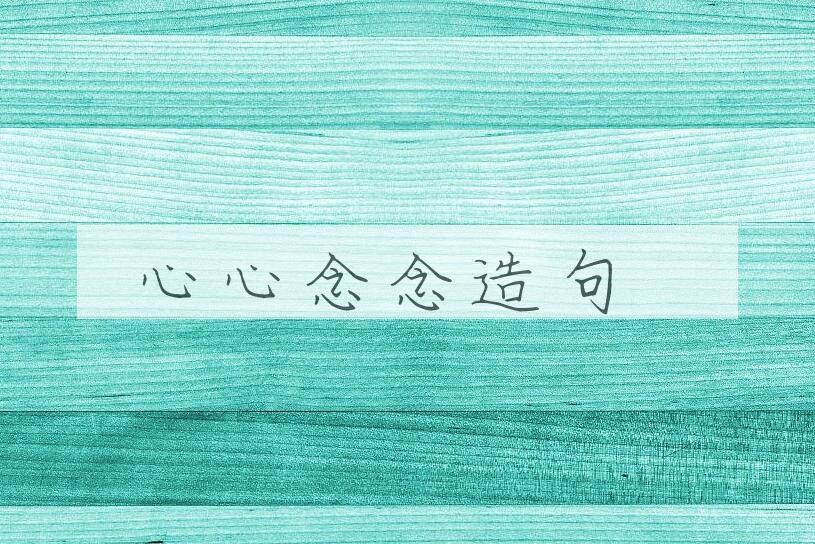 心心念念造句